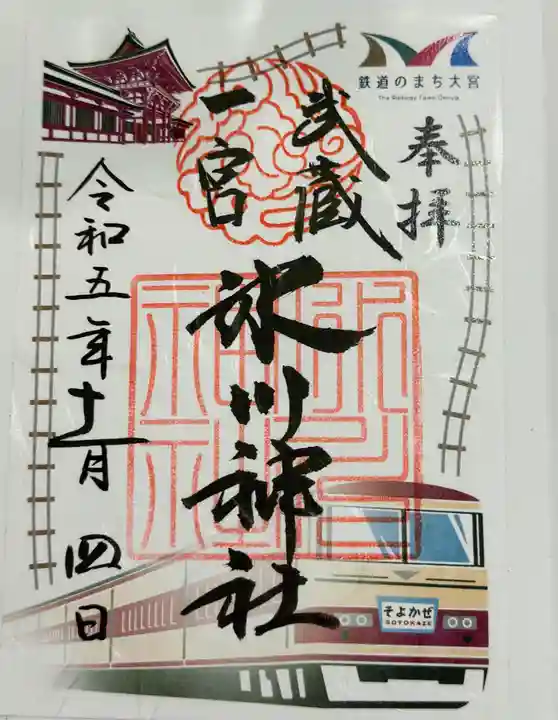 鉄道のまち大宮
The Railway Town Omiya
奉拝
武蔵
一宮
氷川神社
令和五年十一月四日
氷川神社
そよかぜ
SOYOKAZE